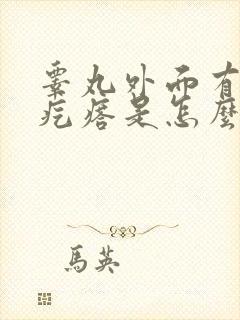 睾丸外面有
疙瘩是怎麼
馬英